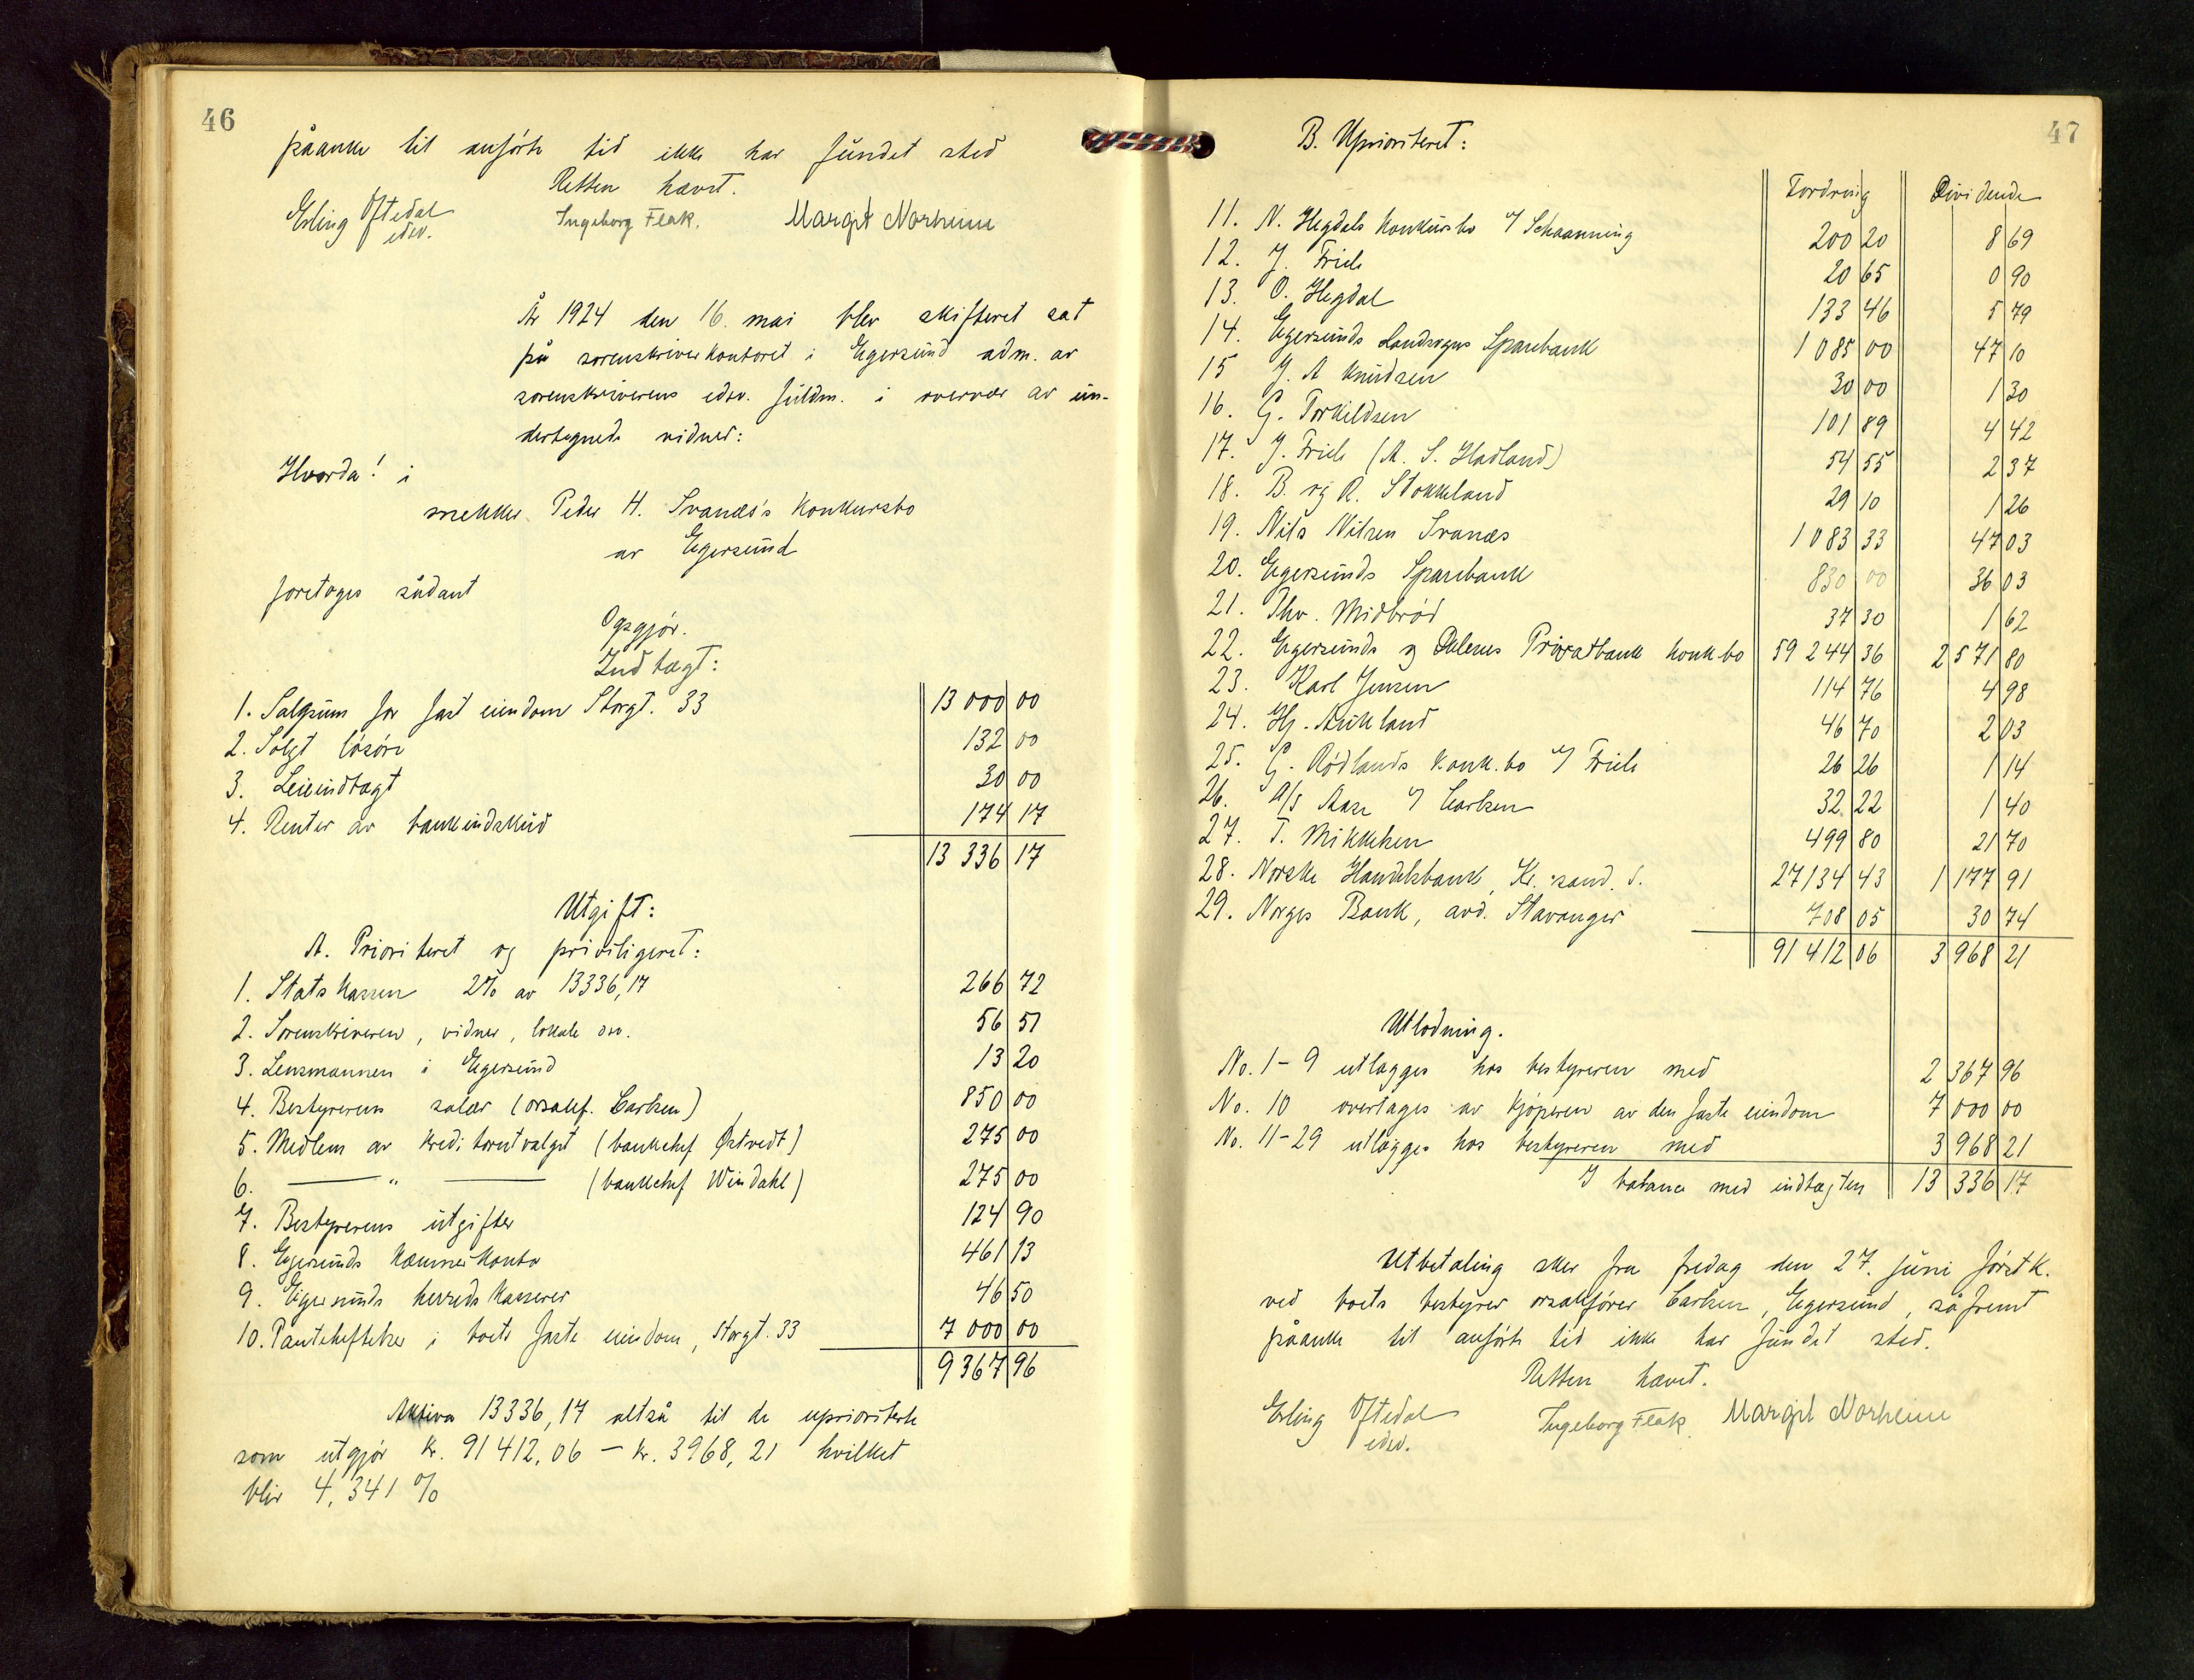 46
påanke til anförte tid ikke har fundet sted
Retten hævet.
Erling Oftedal Ingeborg Fleak. Margit Norheim
edsv.
År 1924 den 16. mai blev skifteret sat
på sorenskriverkontoret i Egersund adm. av
sorenskriverens edsv. fuldm. i overvær av un-
dertegnede vidner:
Hvorda! i
snekker Peder H. Svanæs's konkursbo
av Egersund
foretoges sådant
Opgjör.
Indtægt:
1. Salgsum for fast eiendom Storgt. 33 13 000 00
2. Solgt lösöre 132 00
3. Leieindtægt 30 00
4. Renter av bankindskud 174 17
13 336 17
Utgift:
A. Prioriteret og priviligeret:
1. Statskassen 2% av 13336,17 266 72
2. Sorenskriveren, vidner, lokale osv. 56 51
3. Lensmannen i Egersund 13 20
4. Bestyrerens salær (orsakf. Carlsen) 850 00
5. Medlem av kreditorutvalget (bankchef Østvedt) 275 00
6. — " — (bankchef Windahl) 275 00
7. Bestyrerens utgifter 124 90
8. Egersunds kæmnerkontor 461 13
9. Eigersunds herredskasserer 46 50
10. Panteheftelser i boets faste eiendom, Storgt. 33 7 000 00
9 367 96
Aktiva 13336,17 altså til de uprioriterte
som utgjör kr. 91412,06 — kr. 3968,21 hvilket
blir 4,341 %
47
B. Uprioriteret:
Fordring Dividende
11. N. Hegdals konkursbo v/ Schaanning 200 20 8 69
12. J. Friele 20 65 0 90
13. O. Hegdal 133 46 5 79
14. Egersunds Landsogns Sparebank 1 085 00 47 10
15 J. A Knudsen 30 00 1 30
16. G. Torkildsen 101 89 4 42
17. J. Friele (A. S. Hadland) 54 55 2 37
18. B. og R. Stokkeland 29 10 1 26
19. Nils Nilsen Svanæs 1 083 33 47 03
20. Egersunds Sparebank 830 00 36 03
21. Thv. Midbröd 37 30 1 62
22. Egersunds og Dalenes Privatbank konk.bo 59 244 36 2 571 80
23. Karl Jensen 114 76 4 98
24. Hj. Aukland 46 70 2 03
25. G. Rödlands konk.bo v/ Friele 26 26 1 14
26. A/S Aase v/ Carlsen 32 22 1 40
27. T. Mikkelsen 499 80 21 70
28. Norske Handelsbank, Kr.sand. S. 27134 43 1 177 91
29. Norges Bank, avd. Stavanger 708 05 30 74
91 412 06 3 968 21
Utlodning.
No. 1-9 utlægges hos bestyreren med 2 367 96
No. 10 overtages av kjöperen av den faste eiendom 7 000 00
No. 11-29 utlægges hos bestyreren med 3 968 21
I balance med indtægten 13 336 17
Utbetaling sker fra fredag den 27. juni förstk.
ved boets bestyrer orsakförer Carlsen, Egersund, såfremt
påanke til anförte tid ikke har fundet sted.
Retten hævet.
Erling Oftedal Ingeborg Fleak. Margit Norheim
edsv.